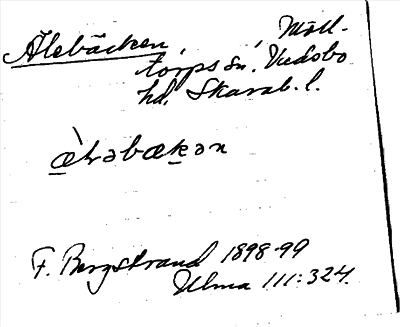 Älebäcken, Möll-
torps sn. Vadsbo
hd. Skarab. l.
æ̀ɫəbækən
F. Bergstrand 1898-99
Ulma 111:324.